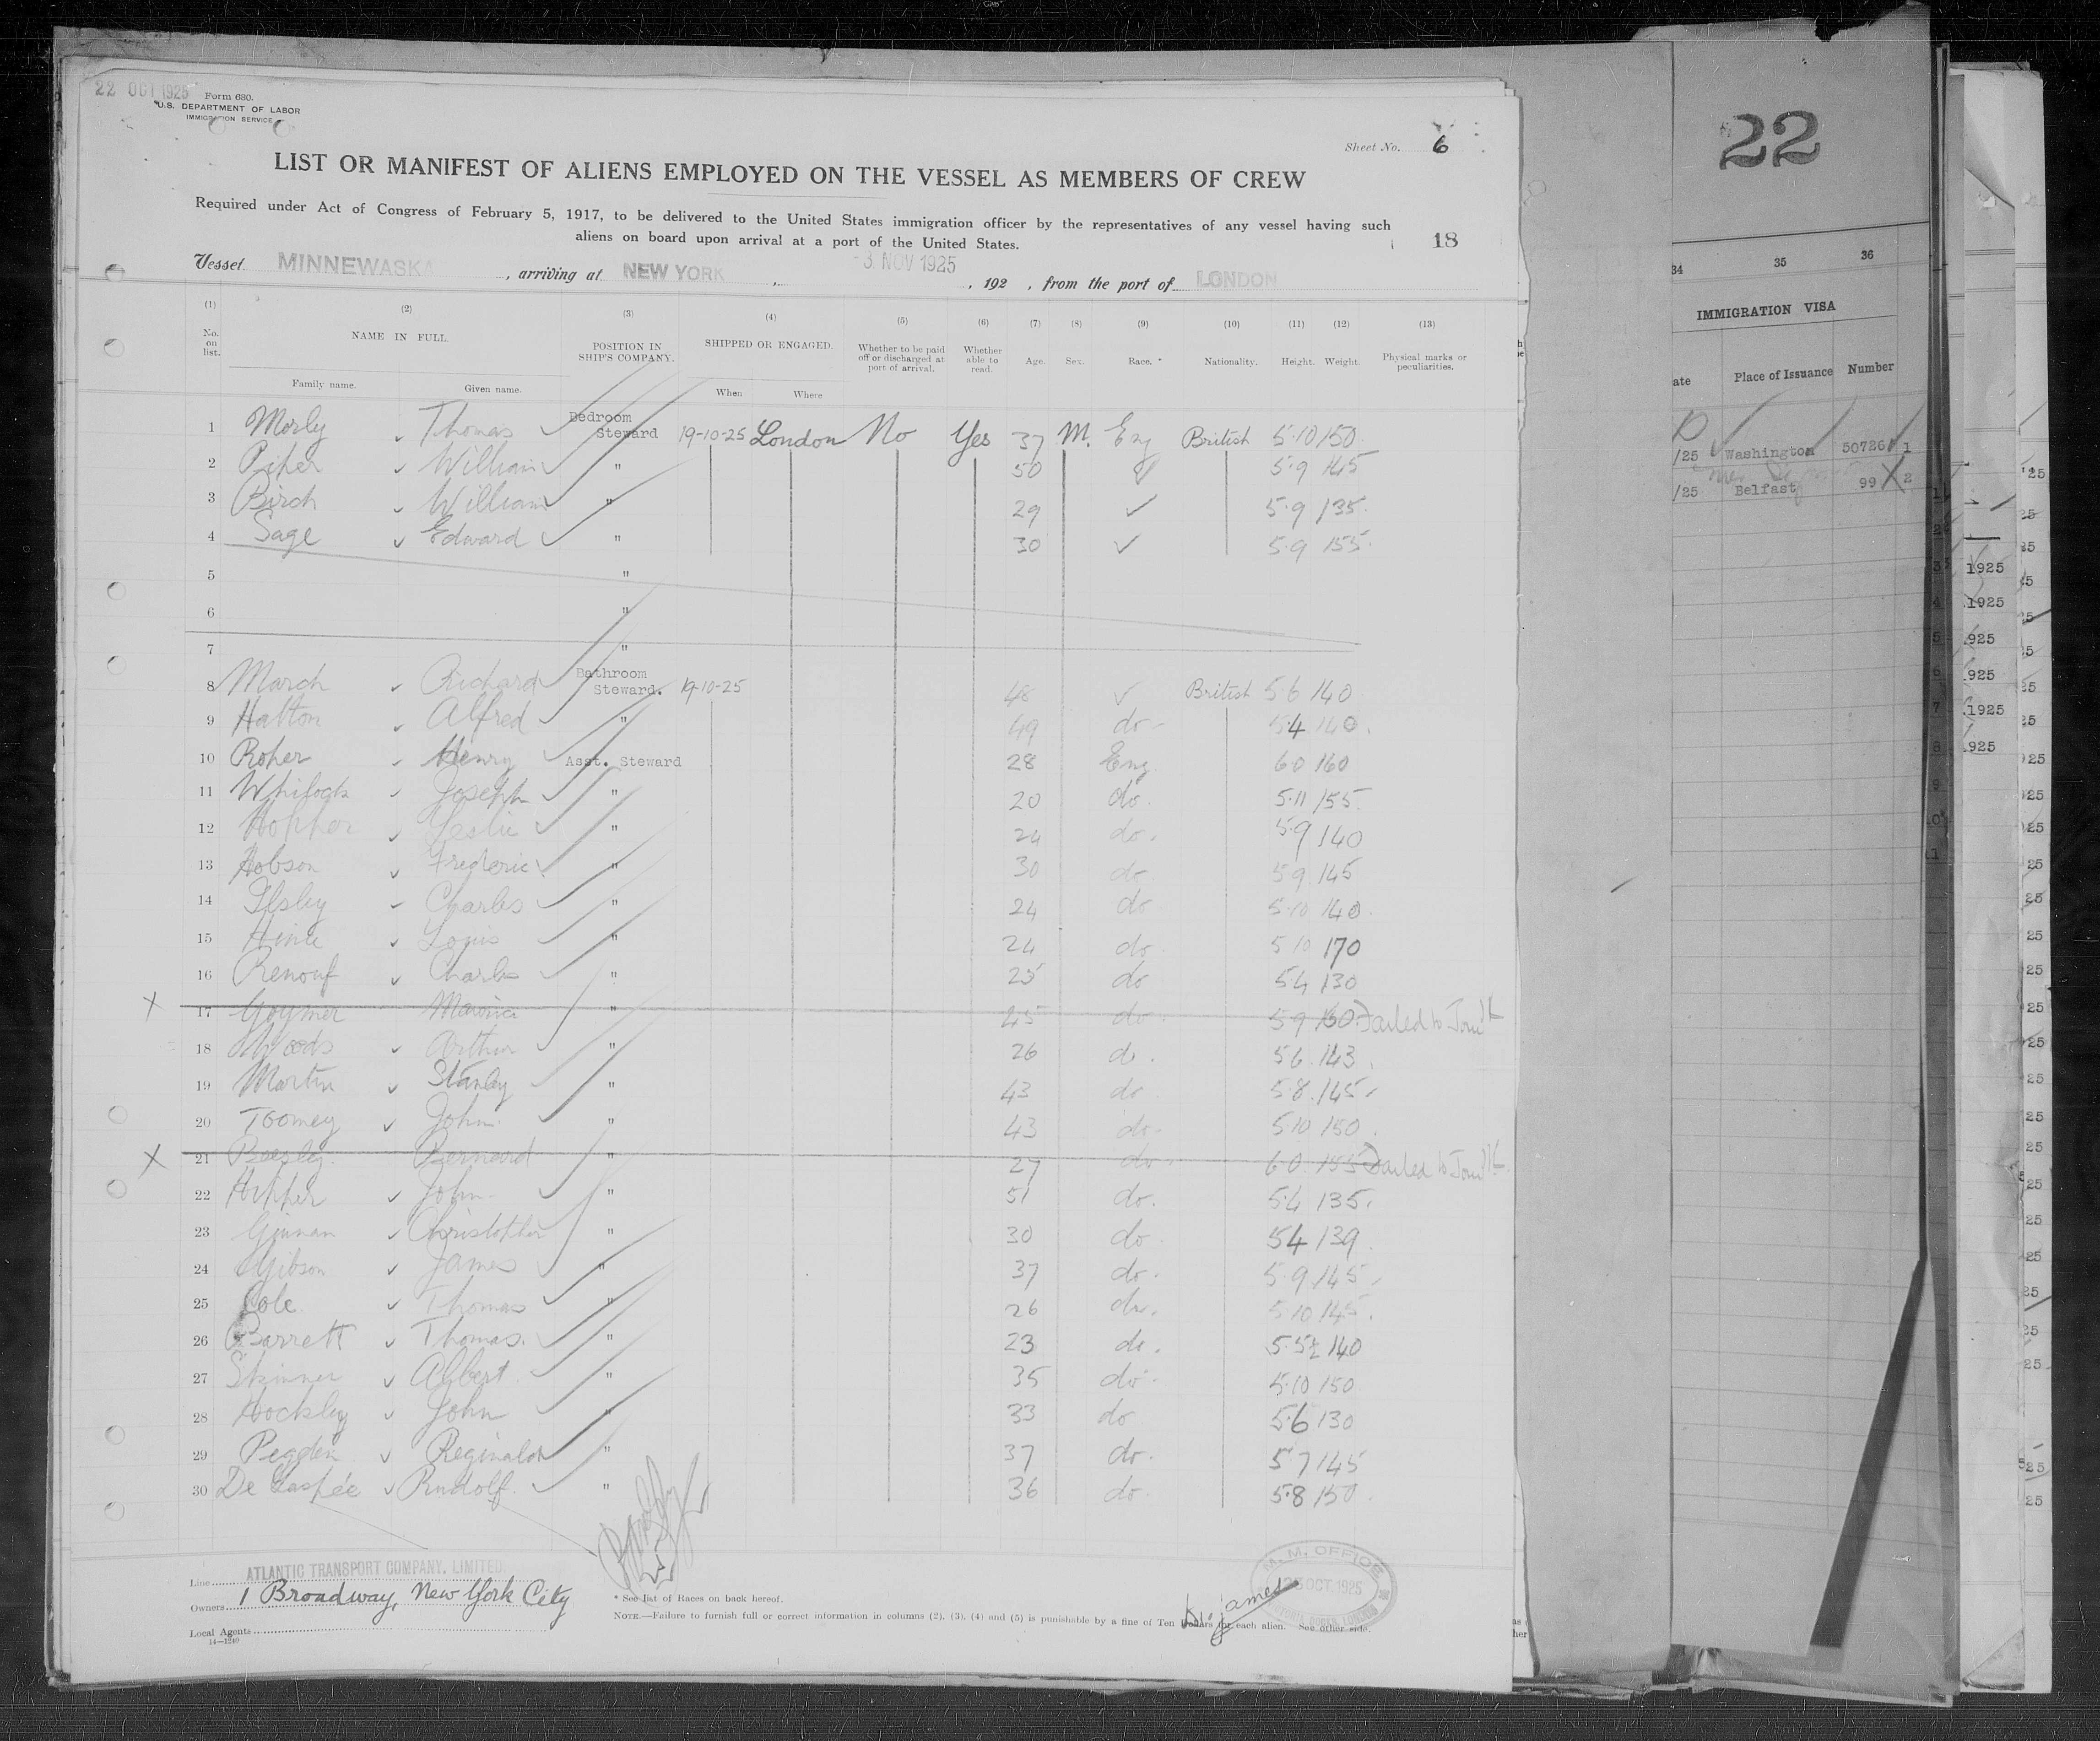 22 OCT 1925
Form 680.
U.S. DEPARTMENT OF LABOR
IMMIGRATION SERVICE
Sheet No. 6
LIST OR MANIFEST OF ALIENS EMPLOYED ON THE VESSEL AS MEMBERS OF CREW
Required under Act of Congress of February 5, 1917, to be delivered to the United States immigration officer by the representatives of any vessel having such
aliens on board upon arrival at a port of the United States.
18
Vessel MINNEWASKA, arriving at NEW YORK, -3 NOV 1925, 192 , from the port of LONDON
(1) (2) (3) (4) (5) (6) (7) (8) (9) (10) (11) (12) (13)
No. on list. NAME IN FULL POSITION IN SHIP'S COMPANY. SHIPPED OR ENGAGED. Whether to be paid off or discharged at port of arrival. Whether able to read. Age. Sex. Race. * Nationality. Height. Weight. Physical marks or peculiarities.
Family name. Given name. When Where
1 Morly Thomas Bedroom Steward 19-10-25 London No Yes 37 M. Eng British 5-10 150
2 Piper William " 50 5-9 145
3 Birch William " 29 5-9 135
4 Sage Edward " 30 5-9 155
5 "
6 "
7 "
8 March Richard Bathroom Steward. 19-10-25 48 British 5-6 140
9 Halton Alfred " 49 do 5-4 140
10 Roher Henry Asst. Steward 28 Eng. 6-0 160
11 Joseph " 20 do. 5-11 155
12 Hopper Leslie " 24 do. 5-9 140
13 Hobson Frederic " 30 do. 5-9 145
14 Ilsley Charles " 24 do 5-10 140
15 Louis " 24 do 5-10 170
16 Renouf Charles " 25 do 5-4 130
17 Maurice " 45 do 5-9 Failed to Join
18 Woods Arthur " 26 do. 5-6 143
19 Martin Stanley " 43 do 5-8 145
20 Toomey John " 43 do 5-10 150
21 Beesley Bernard " 27 do 6-0 155 Failed to Join
22 John " 51 do. 5-4 135
23 Christopher " 30 do 5-4 139
24 Gibson James " 37 do. 5-9 145
25 Cole Thomas " 26 do. 5-10 145
26 Barrett Thomas. " 23 do. 5-5½ 140
27 Skinner Albert " 35 do. 5-10 150
28 Hockley John " 33 do 5-6 130
29 Pegden Reginald " 37 do. 5-7 145
30 De Gaspée Rudolf. " 36 do. 5-8 150
Line ATLANTIC TRANSPORT COMPANY, LIMITED.
Owners 1 Broadway, New York City
Local Agents
14—1240
* See list of Races on back hereof.
NOTE.—Failure to furnish full or correct information in columns (2), (3), (4) and (5) is punishable by a fine of Ten Dollars for each alien. See other side.
M. M. OFFICE
OCT. 1925
22
34 35 36
IMMIGRATION VISA
ate Place of Issuance Number
/25 Washington 50726 1
/25 Belfast 99 2